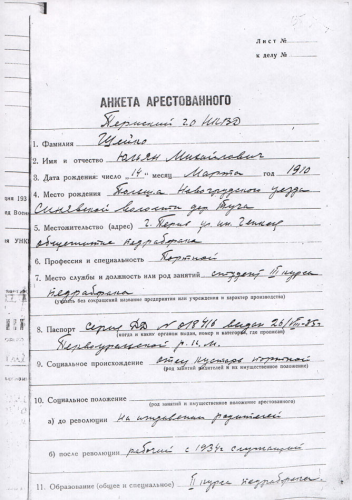 Лист №
к делу №
АНКЕТА АРЕСТОВАННОГО
Пермский г.о НКВД
1. Фамилия Шейко
2. Имя и отчество Юльян Михайлович
3. Дата рождения: число 14 месяц Марта год 1910
4. Место рождения Польша Новогрудского уезда
волости дер.
5. Местожительство (адрес) г. Пермь ул
общежитие педрабфака
6. Профессия и специальность Портной
7. Место службы и должность или род занятий студент III курса
педрабфака
(указать без сокращений название предприятия или учреждения и характер производства)
8. Паспорт серия № 018416 выдан
(когда и каким органом выдан, номер и категория, где прописан)
Первоуральской р.к.м.
9. Социальное происхождение отец кустарь портной
(род занятий родителей и их имущественное положение)
10. Социальное положение
(род занятий и имущественное положение арестованного)
а) до революции на иждивении родителей
б) после революции рабочий с 1934 служащий
11. Образование (общее и специальное) II курса педрабфака